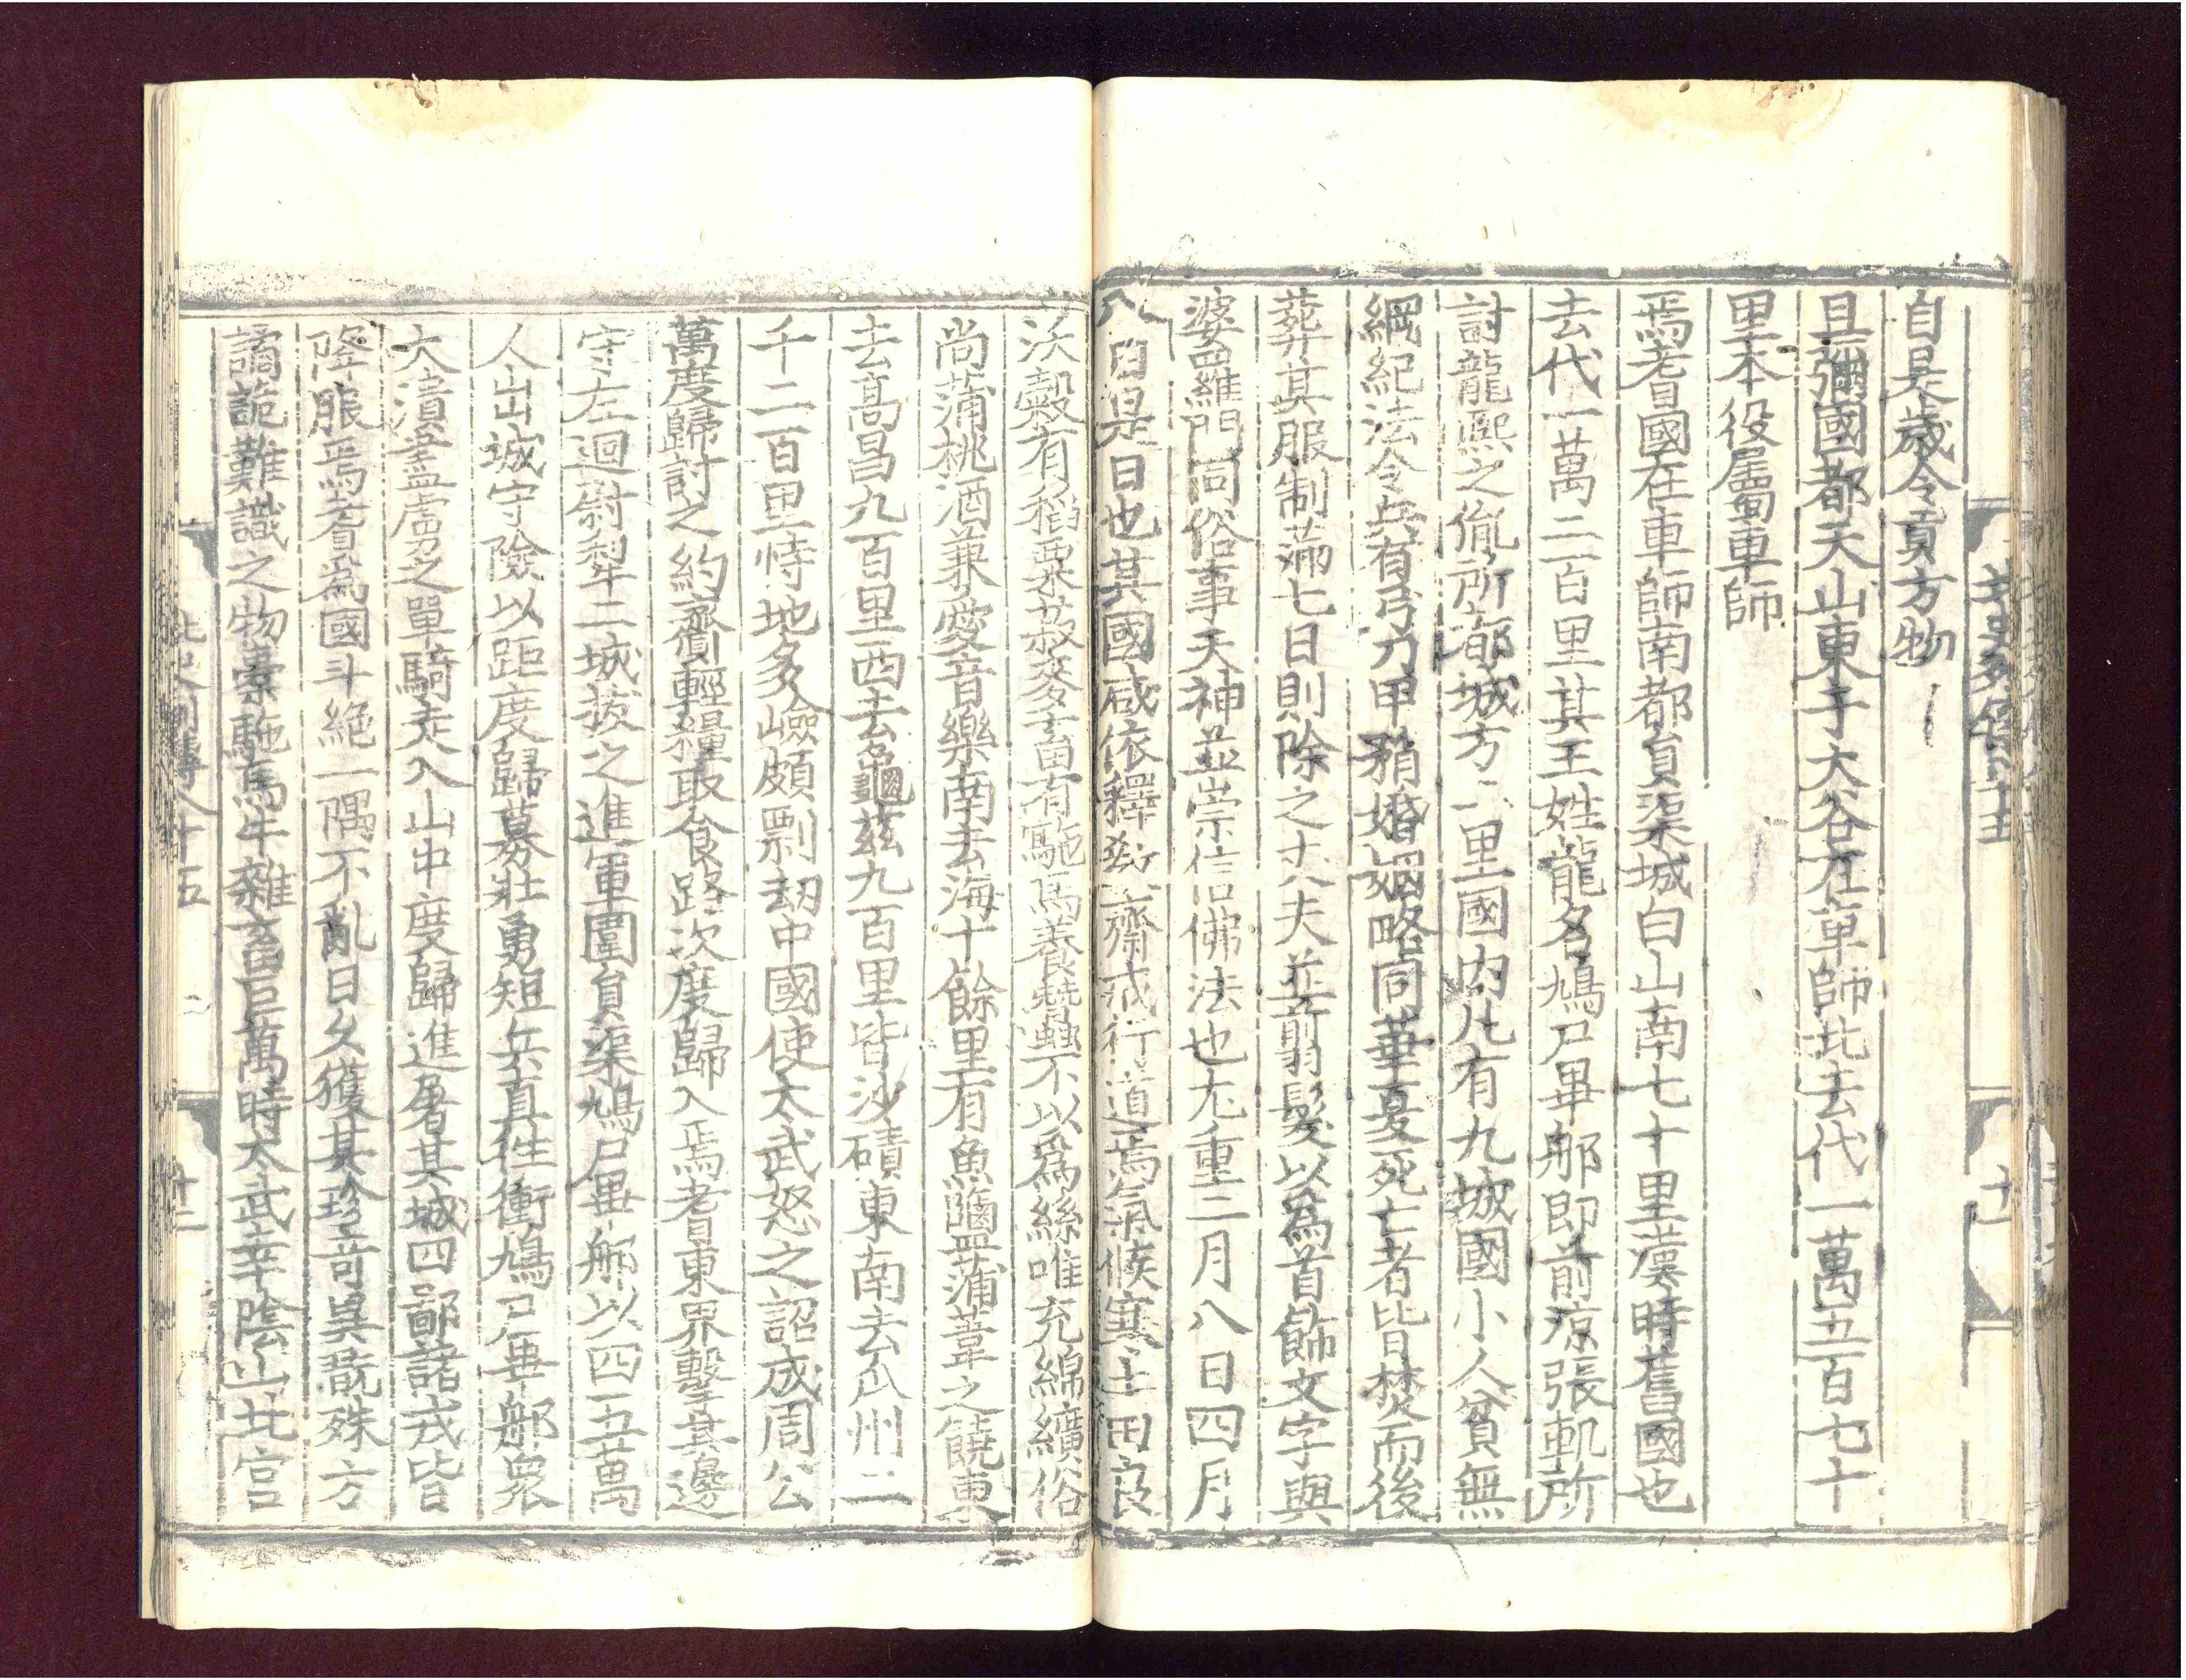 自是歲令貢方物
且彌國都天山東于大谷在車師北去代一萬五百七十
里本役屬車師
焉耆國在車師南都員渠城白山南七十里漢時舊國也
去代一萬二百里其王姓龍名鳩尸畢那即前涼張軌所
討龍熙之胤所都城方二里國內凡有九城國小人貧無
綱紀法令兵有弓刀甲矟婚姻略同華夏死亡者皆焚而後
葬其服制滿七日則除之丈夫並翦髮以為首飾文字與
婆羅門同俗事天神並崇信佛法也尤重二月八日四月
八日是日也其國咸依釋敎齋戒行道焉氣候寒土田良
沃穀有稻粟菽麥畜有駞馬養蠶不以為絲唯充綿纊俗
尚蒲桃酒兼愛音樂南去海十餘里有魚鹽蒲葦之饒東
去高昌九百里西去龜茲九百里皆沙磧東南去瓜州二
千二百里恃地多嶮頗剽劫中國使太武怒之詔成周公
萬度歸討之約齎輕糧取食路次度歸入焉耆東界擊其邊
守左迴尉犁二城拔之進軍圍員渠鳩尸畢那以四五萬
人出城守險以距度歸募壯勇短兵直往衝鳩尸畢那衆
大潰盡虜之單騎走入山中度歸進屠其城四鄙諸戎皆
降服焉耆為國斗絕一隅不亂日久獲其珍奇異翫殊方
譎詭難識之物橐駞馬牛雜畜巨萬時太武幸陰山北宮
北史列傳八十五